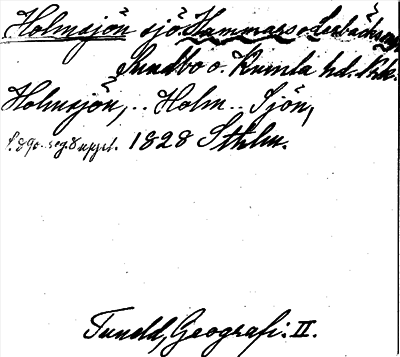 Holmsjön sjö. Hammars o. Lerbäcks sn
Sundbo o. Kumla hd. Nrk.
Holmsjön, .. Holm .. Sjön,
S. 890. 8 uppl. 1828 Sthlm.
Tuneld, Geografi. II.